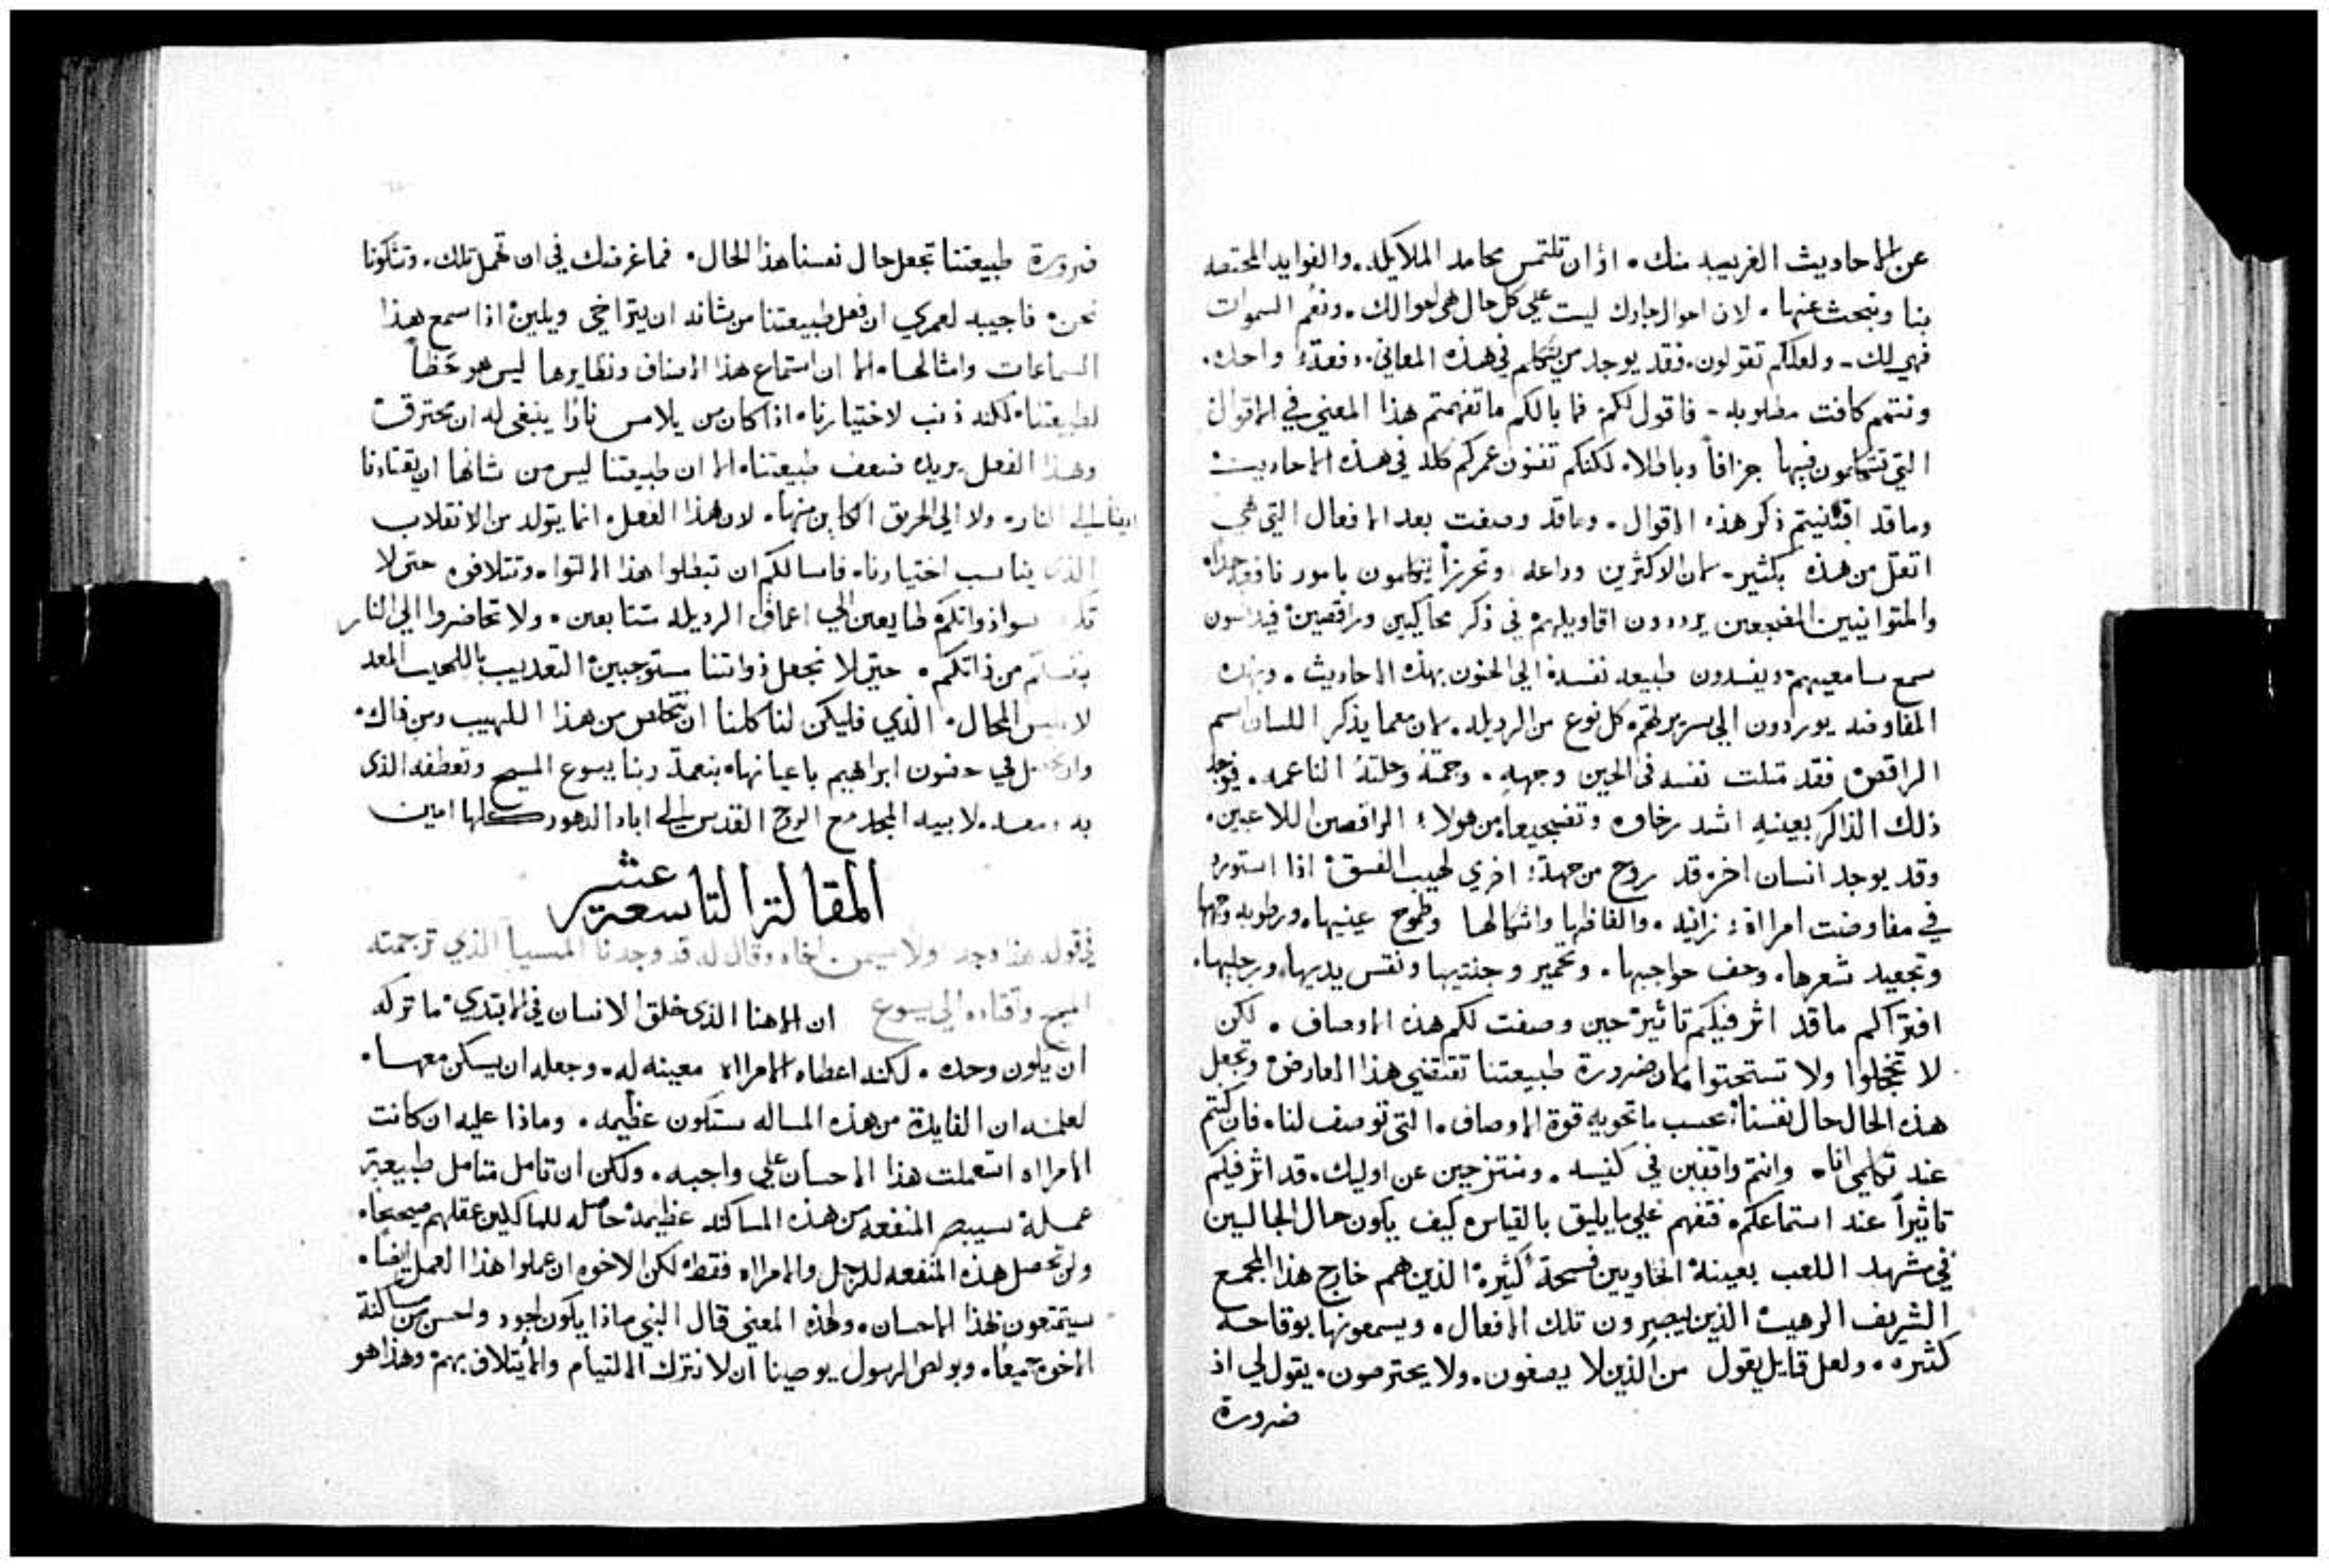 عن الاحاديث الغريبه منك. اذ ان تلتمس محامد الملايكه. والفوايد المختصه
بنا وتبحث عنها. لان احوال جارك ليست على كل حال هي احوالك. ونعم السموات
فهي لك - ولعلكم تقولون. فقد يوجد من يتكلم في هذه المعاني. دفعة واحده.
وتتمم كافت مطلوبه - فاقول لكم فما بالكم ما تفهمتم هذا المعني في الاقوال
التي تتكلمون فيها جزافاً وباطلا. لكنكم تفنون عمركم كله في هذه الاحاديث
وما قد اقتنيتم ذكر هذه الاقوال. وما قد وصفت بعد الافعال التي هي
اثقل من هذه بكثير - لان الاكثرين وداعه وتحرزاً يتكلمون بامور نافقه جداً
والمتوانيين المضجعين يرددون اقاويلهم في ذكر محاكيين وراقصين فيدنسون
سمع سامعيهم ويفسدون طبيعه نفسه الي الجنون بهذه الاحاديث. وبهذه
المفاوضه يوردون الي سريرتهم كل نوع من الرديله. لان معما يذكر اللسان اسم
الراقص فقد مثلت نفسه في الحين وجهه. وجمته وحلته الناعمه. فيوجد
ذلك الذاكر بعينه اشد رخاوه وتفسيحها من هولاء الراقصين اللاعبين.
وقد يوجد انسان اخر قد روح من جهة اخري لهيب الفسق اذا استورد
في مفاوضت امراة زانيه. والفاظها واشكالها وطموح عينيها. ورطوبه وجهها
وتجعيد شعرها. وحف حواجبها. وتحمير وجنتيها ونقس يديها ورجليها.
افتراكم ما قد اثر فيكم تاثير حين وصفت لكم هذه الاوصاف. لكن
لا تخجلوا ولا تستحتوا لان ضرورة طبيعتنا تقتضي هذا العارض وتجعل
هذه الحال حال نفسنا. بحسب ما تحويه قوة الاوصاف. التي توصف لنا. فان كنتم
عند تكلمي انا. وانتم واقفين في كنيسه. ومنتزحين عن اوليك. قد اثر فيكم
تاثيراً عند استماعكم. فتفهم علي ما يليق بالقياس كيف يكون حال الجالسين
في مشهد اللعب بعينه الحاويين فسحة كثيرة الذين هم خارج هذا المجمع
الشريف الرهيب الذين يبصرون تلك الافعال. ويسمعونها بوقاحه
كثيره. ولعل قايل يقول من الذين لا يصغون. ولا يحترصون. يقول لي اذ
ضرورة
ضرورة طبيعتنا تجعل حال نفسنا هذا الحال. فما غرضك في ان تهمل تلك. وتشكونا
نحن. فاجيبه لعمري ان فعل طبيعتنا من شانه ان يتراخي ويلين اذا سمع هذا
السماعات وامثالها. الا ان استماع هذا الاصناف ونظايرها ليس هو خطأ
لطبيعتنا. لكنه ذنب لاختيارنا. اذ كان من يلامس ناراً ينبغي له ان يحترق
وهذا الفعل يريده ضعف طبيعتنا. الا ان طبيعتنا ليس من شانها ان تقتادنا
الي النار. ولا الي الحريق الكاين منها. لان هذا الفعل. انما يتولد من الانقلاب
الذي يناسب اختيارنا. فاسالكم ان تبطلوا هذا الالتوا. وتتلافوه حتي لا
ذواتكم طايعين الي اعماق الرديله متتابعين. ولا تحاضروا الي النار
من ذاتكم. حتي لا نجعل ذواتنا مستوجبين التعذيب باللهيب المعد
المحال. الذي فليكن لنا كلنا ان نتخلص من هذا اللهيب ومن ذاك.
في حضون ابراهيم باعيانها. بنعمة ربنا يسوع المسيح وتعطفه الذي
به ومعه لابيه المجد مع الروح القدس الي اباد الدهور كلها امين
المقالة التاسعة عشر
في قوله هذا وجد اولا سيمن اخاه وقال له قد وجدنا المسيا الذي ترجمته
المسيح واقتاده الي يسوع ان الاهنا الذي خلق الانسان في الابتدي ما تركه
ان يكون وحده. لكنه اعطاه الامراه معينه له. وجعله ان يسكن معها.
لعلمه ان الفايدة من هذه المساله ستكون عظيمه. وماذا عليه ان كانت
الامراه استعملت هذا الاحسان علي واجبه. ولكن ان تامل متامل طبيعة
عمله سيبصر المنفعه من هذه المساكنه عظيمة حاصله للمالكين عقلهم صحيحاً.
ولن تحصل هذه المنفعه للرجل والامراه فقط. لكن الاخوه ان عملوا هذا العمل ايضاً.
سيتمتعون بهذا الاحسان. ولهذه المعني قال النبي ماذا يكون اجود واحسن من مساكنة
الاخوه جميعاً. وبولص الرسول يوصينا ان لا نترك الالتيام والأيتلاف بهم. وهذا هو